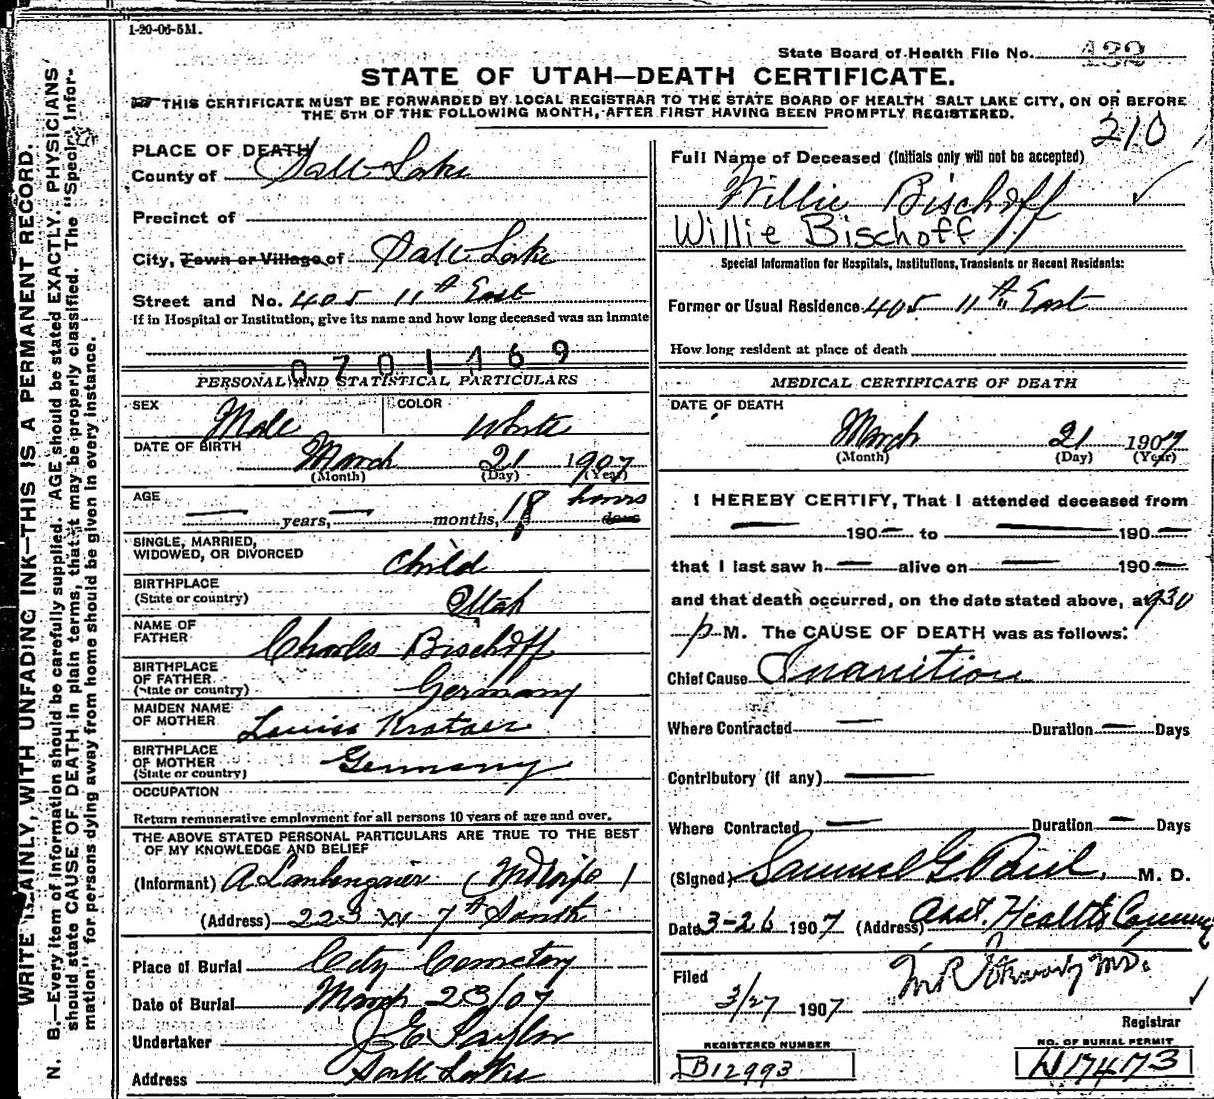 1-20-06-5M.
State Board of Health File No. 132
STATE OF UTAH—DEATH CERTIFICATE.
THIS CERTIFICATE MUST BE FORWARDED BY LOCAL REGISTRAR TO THE STATE BOARD OF HEALTH SALT LAKE CITY, ON OR BEFORE
THE 5TH OF THE FOLLOWING MONTH, AFTER FIRST HAVING BEEN PROMPTLY REGISTERED.
210
WRITE PLAINLY, WITH UNFADING INK—THIS IS A PERMANENT RECORD.
N. B.—Every item of information should be carefully supplied. AGE should be stated EXACTLY. PHYSICIANS
should state CAUSE OF DEATH in plain terms, that it may be properly classified. The "Special Infor-
mation" for persons dying away from home should be given in every instance.
PLACE OF DEATH
County of Salt Lake
Precinct of
City, Town or Village of Salt Lake
Street and No. 405 11th East
If in Hospital or Institution, give its name and how long deceased was an inmate
0701469
PERSONAL AND STATISTICAL PARTICULARS
SEX Male COLOR White
DATE OF BIRTH March 21 1907
(Month) (Day) (Year)
AGE
— years, — months, 18 hours days
SINGLE, MARRIED,
WIDOWED, OR DIVORCED Child
BIRTHPLACE
(State or country) Utah
NAME OF
FATHER Charles Bischoff
BIRTHPLACE
OF FATHER
(State or country) Germany
MAIDEN NAME
OF MOTHER Louisa
BIRTHPLACE
OF MOTHER
(State or country) Germany
OCCUPATION
Return remunerative employment for all persons 10 years of age and over.
THE ABOVE STATED PERSONAL PARTICULARS ARE TRUE TO THE BEST
OF MY KNOWLEDGE AND BELIEF
(Informant) A
(Address) 223 W 7th South
Place of Burial City Cemetery
Date of Burial March 23/07
Undertaker J E Taylor
Address Salt Lake
Full Name of Deceased (Initials only will not be accepted)
Willie Bischoff
Willie Bischoff
Special Information for Hospitals, Institutions, Transients or Recent Residents:
Former or Usual Residence 405 11th East
How long resident at place of death
MEDICAL CERTIFICATE OF DEATH
DATE OF DEATH
March 21 1907
(Month) (Day) (Year)
I HEREBY CERTIFY, That I attended deceased from
— 190— to — 190—
that I last saw h— alive on — 190—
and that death occurred, on the date stated above, at 930
p M. The CAUSE OF DEATH was as follows:
Chief Cause Inanition
Where Contracted — Duration — Days
Contributory (if any) —
Where Contracted — Duration — Days
(Signed) Samuel G. Paul, M. D.
Date 3-26 1907 (Address) Asst. Health Commr
Filed
3/27 1907
Registrar
REGISTERED NUMBER
B12993
NO. OF BURIAL PERMIT
W17473